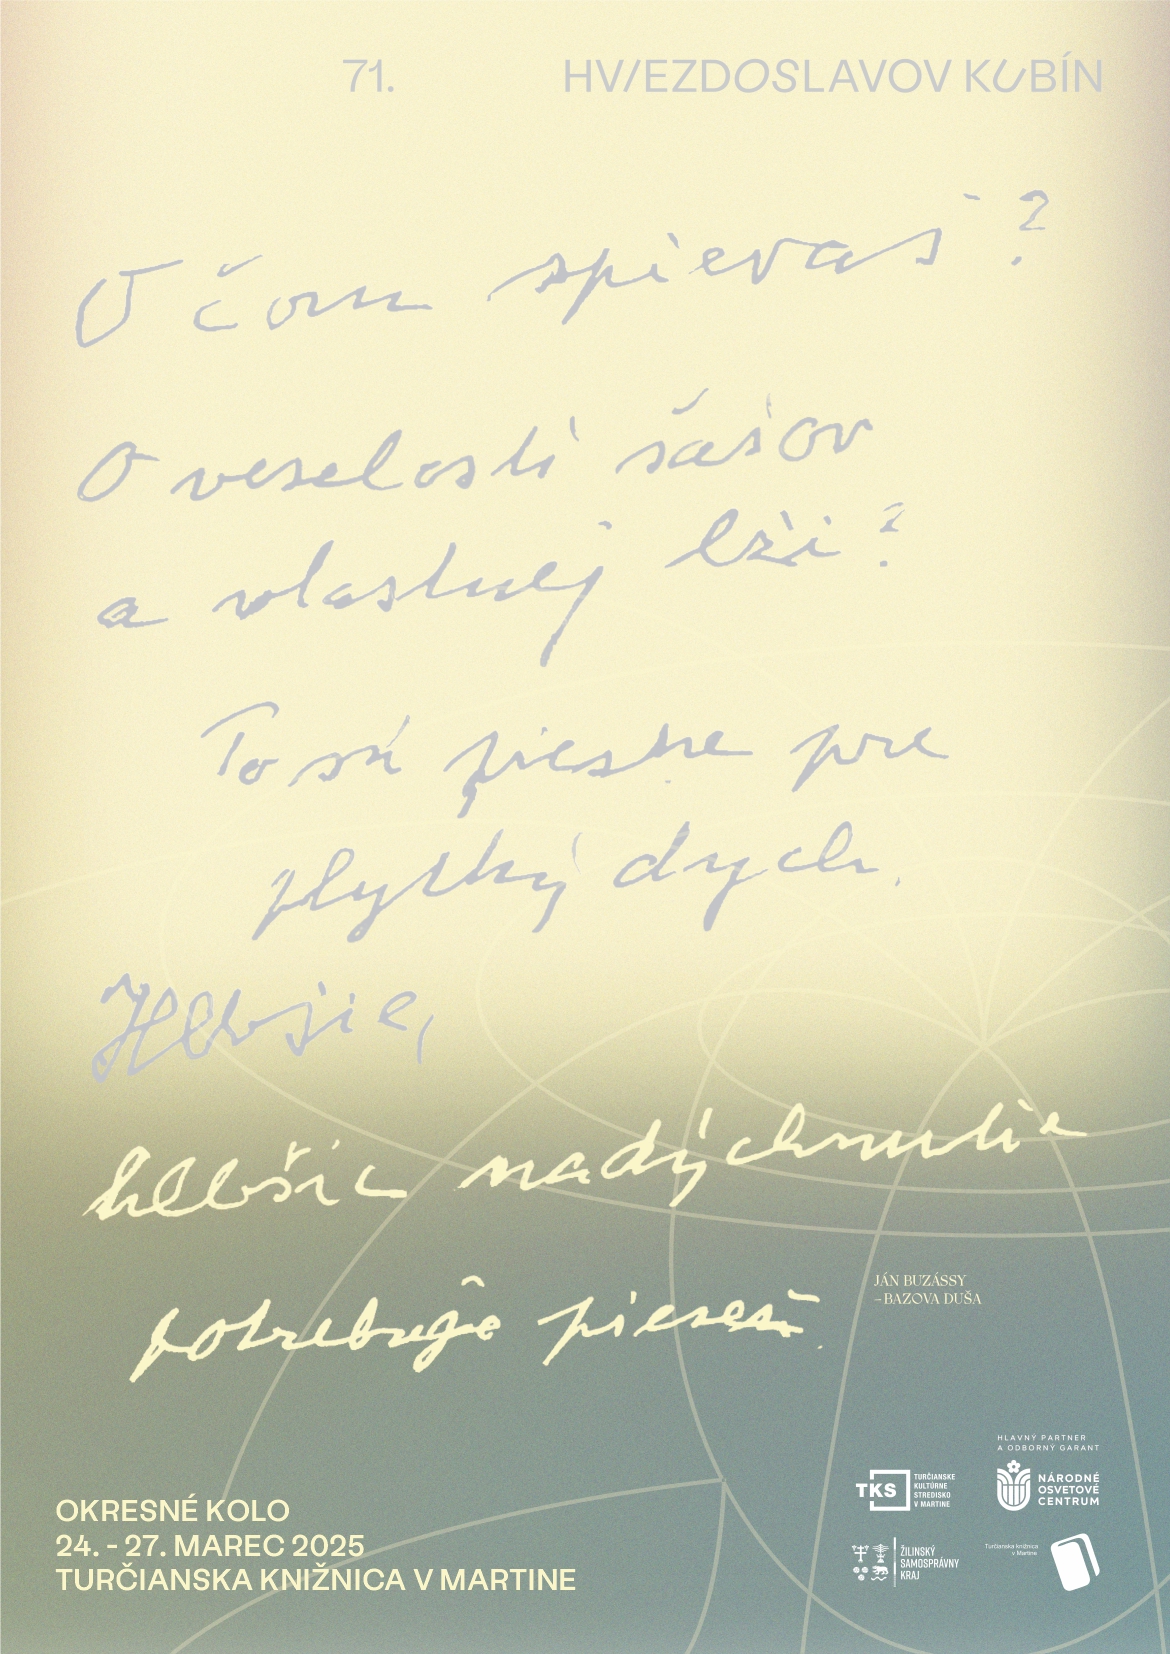 71. HVIEZDOSLAVOV KUBÍN
O čom spievaš?
O veselosti šašov
a vlastnej lži?
To sú piesne pre
plytký dych.
Hlbšie,
hlbšie nadýchnutie
potrebuje pieseň.
JÁN BUZÁSSY
– BAZOVA DUŠA
HLAVNÝ PARTNER
A ODBORNÝ GARANT
TKS
TURČIANSKE
KULTÚRNE
STREDISKO
V MARTINE
NÁRODNÉ
OSVETOVÉ
CENTRUM
OKRESNÉ KOLO
24. - 27. MAREC 2025
TURČIANSKA KNIŽNICA V MARTINE
ŽILINSKÝ
SAMOSPRÁVNY
KRAJ
Turčianska knižnica
v Martine